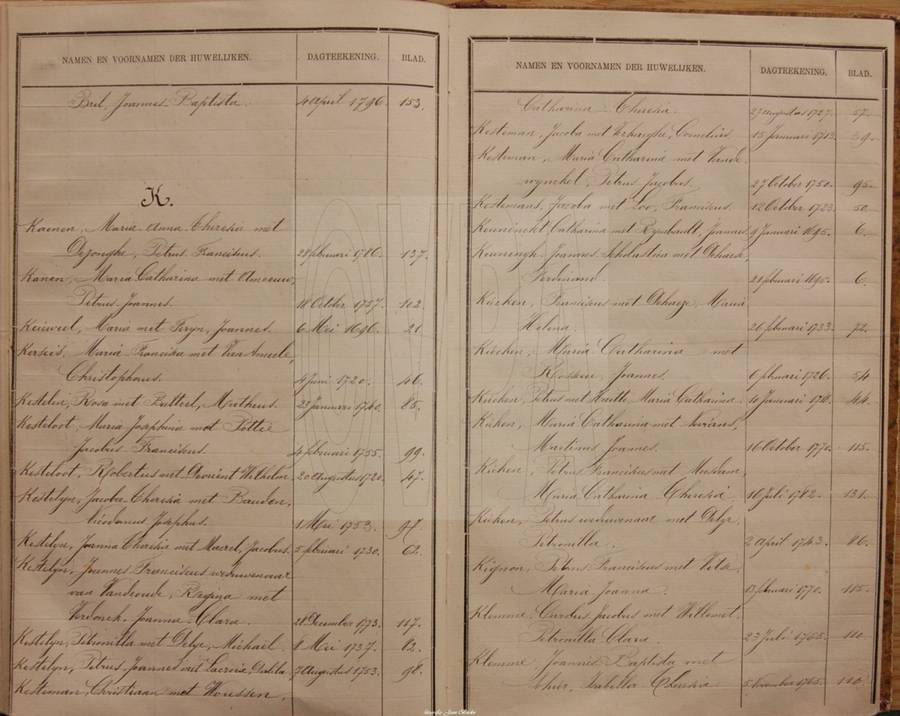 NAMEN EN VOORNAMEN DER HUWELIJKEN. DAGTEEKENING. BLAD.
Bril, Joannes Baptista 4 April 1796. 153.
K.
Kaenen, Maria Anna Theresia met
Dejonghe, Petrus Franciscus. 28 februari 1786. 137.
Kanen, Maria Catharina met
Petrus Joannes. 18 October 1757. 102.
Maria met Joannes. 6 Mei 1696. 21.
Maria Francisca met
Christophorus. 4 Juni 1720. 46.
Kestelen, Rosa met Butterl, Matheus. 23 Januari 1740. 85.
Kesteloot, Maria Josephina met Pottié
Jacobus Franciscus. 4 februari 1755. 99.
Kesteloot, Robertus met Wilhelm 20 Augustus 1720. 47.
Kestelyn, Jacoba Theresia met
Nicolaus Josephus. 1 Mei 1753. 97.
Kestelyn, Joanna Theresia met Maerel, Jacobus. 5 februari 1730. 62.
Kestelyn, Joannes Franciscus weduwenaar
van Vandeouve, Regina met
Verdonck, Joanna Clara. 28 December 1773. 117.
Kestelyn, Petronilla met Delye, Michaël. 8 Mei 1737. 82.
Kestelyn, Petrus Joannes met 7 Augustus 1753. 98.
Kesteman, Christiaan met Woussen,
NAMEN EN VOORNAMEN DER HUWELIJKEN. DAGTEEKENING. BLAD.
Catharina Theresia. 27 Augustus 1727. 57.
Kesteman, Jacoba met Cornelius 15 Januari 1713. 39.
Kesteman, Maria Catharina met Vande
wynckel, Petrus Jacobus. 27 October 1750. 95.
Kestemans, Jacoba met Loo, Franciscus. 12 October 1723. 50.
Keuninckt Catharina met Rymbault, Joannes 9 Januari 1695. 6.
Keuninghe, Joannes Scholastica met
Ferdinand 21 februari 1695. 6.
Kiecken, Franciscus met Dehaeze, Maria
Helena. 26 februari 1733. 72.
Kiecken, Maria Catharina met
Joannes. 6 februari 1726. 54.
Kiecken, Petrus met Houtte, Maria Catharina. 10 Januari 44.
Kieken, Maria Catharina met
Martinus Joannes. 16 October 1770. 115.
Kieken, Petrus Franciscus met
Maria Catharina Theresia 16 Juli 1782. 131.
Kieken, Petrus weduwenaar met Delye,
Petronilla. 2 April 1743. 86.
Kignon, Petrus Franciscus met
Maria Joanna. 13 februari 1770. 115.
Klemme, Carolus Jacobus met Willemet
Petronilla Clara. 23 Juli 1765. 110.
Klemme, Joannes Baptista met
Isabella Theresia 5 November 1765. 110.